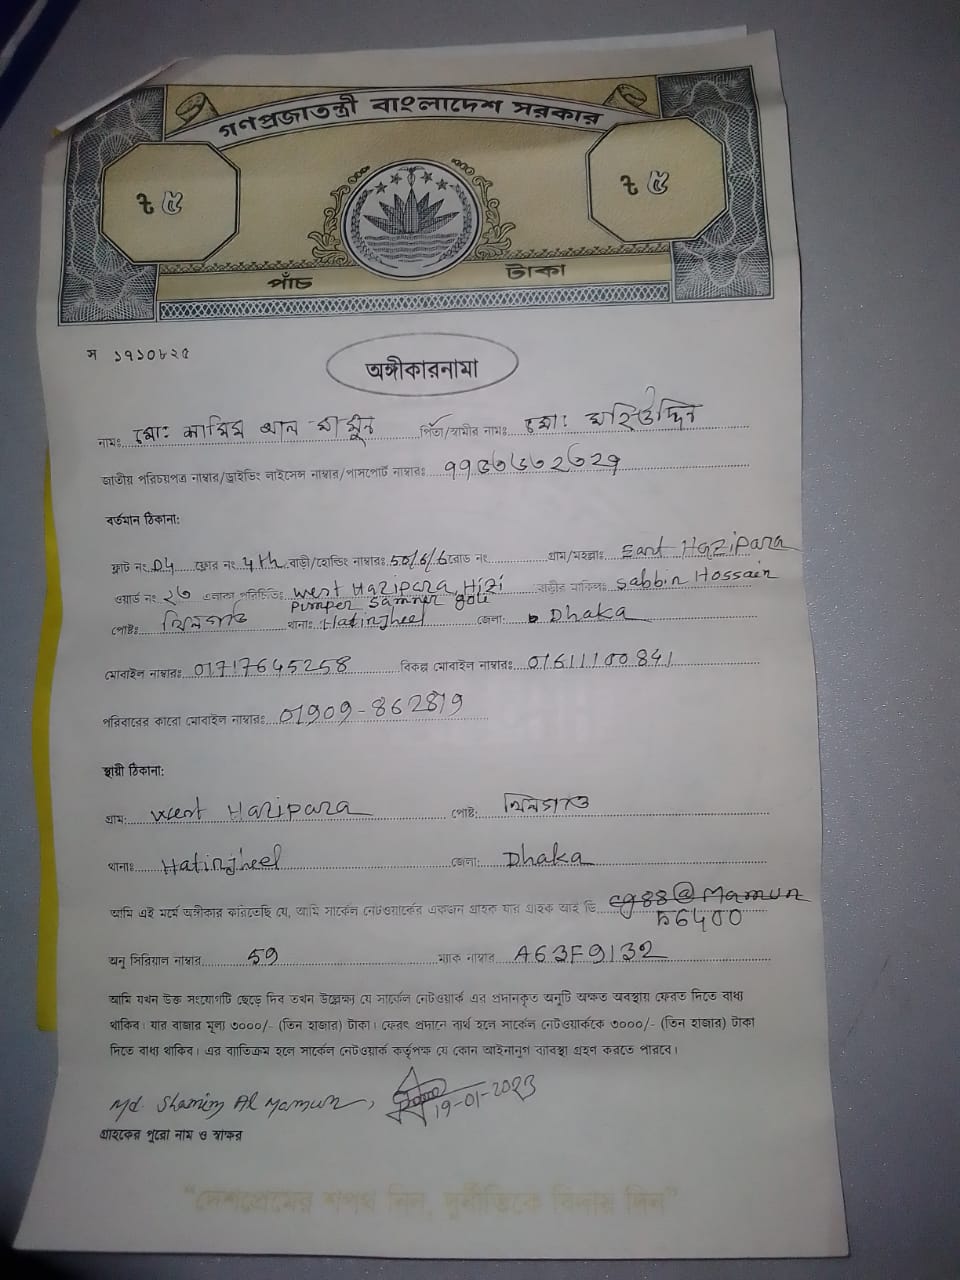 গণপ্রজাতন্ত্রী বাংলাদেশ সরকার
৳ ৫ ৳ ৫
পাঁচ টাকা
স ১৭১০৮২৫
অঙ্গীকারনামা
নামঃ মোঃ শামিম আল মামুন পিতা/স্বামীর নামঃ মোঃ মহিউদ্দিন
জাতীয় পরিচয়পত্র নাম্বার/ড্রাইভিং লাইসেন্স নাম্বার/পাসপোর্ট নাম্বারঃ
বর্তমান ঠিকানা:
ফ্লাট নং D4 ফ্লোর নং 4th বাড়ী/হোল্ডিং নাম্বারঃ 50/6/6 রোড নং গ্রাম/মহল্লাঃ East Hazipara
ওয়ার্ড নং ২৩ এলাকা পরিচিতিঃ West Hazipara, বাড়ীর মালিকঃ Sabbir Hossain
পোষ্টঃ খিলগাঁও থানাঃ Hatirjheel জেলা: Dhaka
মোবাইল নাম্বারঃ 01717645258 বিকল্প মোবাইল নাম্বারঃ 01611100841
পরিবারের কারো মোবাইল নাম্বারঃ 01909-862819
স্থায়ী ঠিকানা:
গ্রাম: West Hazipara পোষ্ট: খিলগাঁও
থানাঃ Hatirjheel জেলা: Dhaka
আমি এই মর্মে অঙ্গীকার করিতেছি যে, আমি সার্কেল নেটওয়ার্কের একজন গ্রাহক যার গ্রাহক আই ডি
অনু সিরিয়াল নাম্বার 59 ম্যাক নাম্বার A63F9132
আমি যখন উক্ত সংযোগটি ছেড়ে দিব তখন উল্লেক্ষ্য যে সার্কেল নেটওয়ার্ক এর প্রদানকৃত অনুটি অক্ষত অবস্থায় ফেরত দিতে বাধ্য
থাকিব। যার বাজার মূল্য ৩০০০/- (তিন হাজার) টাকা। ফেরৎ প্রদানে ব্যর্থ হলে সার্কেল নেটওয়ার্ককে ৩০০০/- (তিন হাজার) টাকা
দিতে বাধ্য থাকিব। এর ব্যতিক্রম হলে সার্কেল নেটওয়ার্ক কর্তৃপক্ষ যে কোন আইনানুগ ব্যাবস্থা গ্রহণ করতে পারবে।
Md. Shamim Al Mamun, 19-01-2023
গ্রাহকের পুরো নাম ও স্বাক্ষর
“দেশপ্রেমের শপথ নিন, দুর্নীতিকে বিদায় দিন”